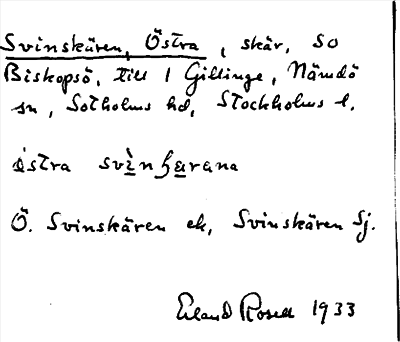 Svinskären, Östra, skär, SO
Biskopsö, till 1 Gillinge, Nämdö
sn, Sotholms hd, Stockholms l.
östra svìnʃarana
Ö. Svinskären ek, Svinskären Sj.
Erland Rosell 1933